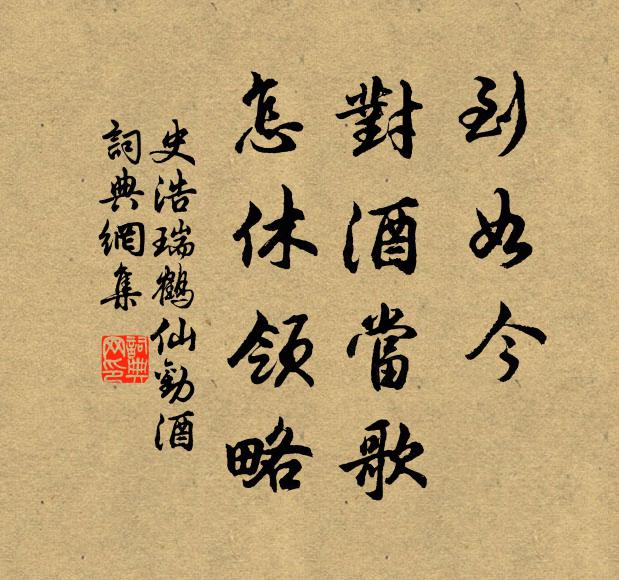 到如今
對酒當歌
怎休領略
史浩瑞鶴仙勸酒
詞典網集
詞典
网印